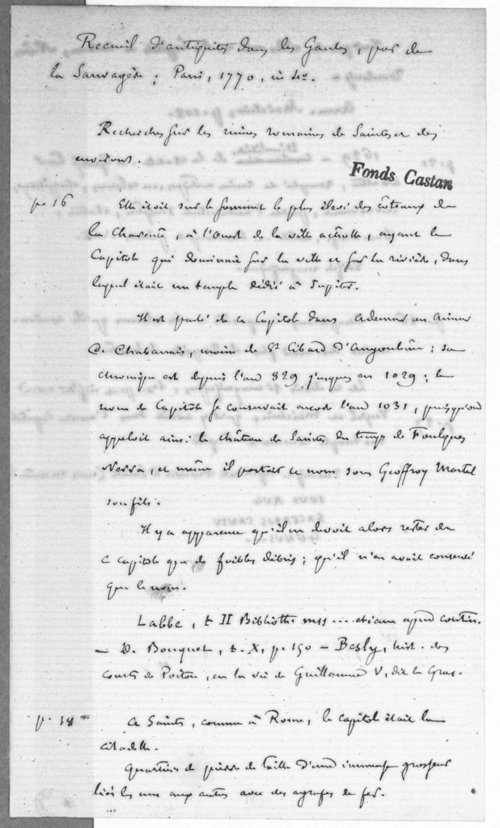 Recueil d'antiquités dans les Gaules, par de
la Sauvagère ; Paris, 1770, in 4o.
Recherches sur les ruines romaines de Saintes et des
environs.
Fonds Castan
p. 16
Elle étoit sur le sommet le plus élevé des côteaux de
la Charente, à l'Ouest de la ville actuelle, ayant le
Capitole qui dominait sur la ville et sur la rivière, dans
lequel était un temple dédié à Jupiter.
Il est parlé de ce Capitole dans Ademar ou Aimar
de Chabannais, moine de St Cibard d'Angoulême ; sa
chronique est depuis l'an 829 jusques en 1029 ; le
nom de Capitole se conservait encore l'an 1031, puisqu'on
appeloit ainsi le château de Saintes du temps de Foulques
Nerra, et même il portait ce nom sous Geoffroy Martel
son fils.
Il y a apparence qu'il ne devoit alors rester de
ce capitole que de foibles débris ; qu'il n'en avait conservé
que le nom.
Labbe, t. II Biblioth. mss ... etiam apud
— D. Bouquet, t. X, p. 150 — Besly, hist. des
comtes de Poitou, en la vie de Guillaume V, dit le Gras.
p. 18
A Saintes, comme à Rome, le capitole était la
citadelle.
Quartiers de pierre de taille d'une immense grosseur
liés les uns aux autres avec des agrafes de fer.